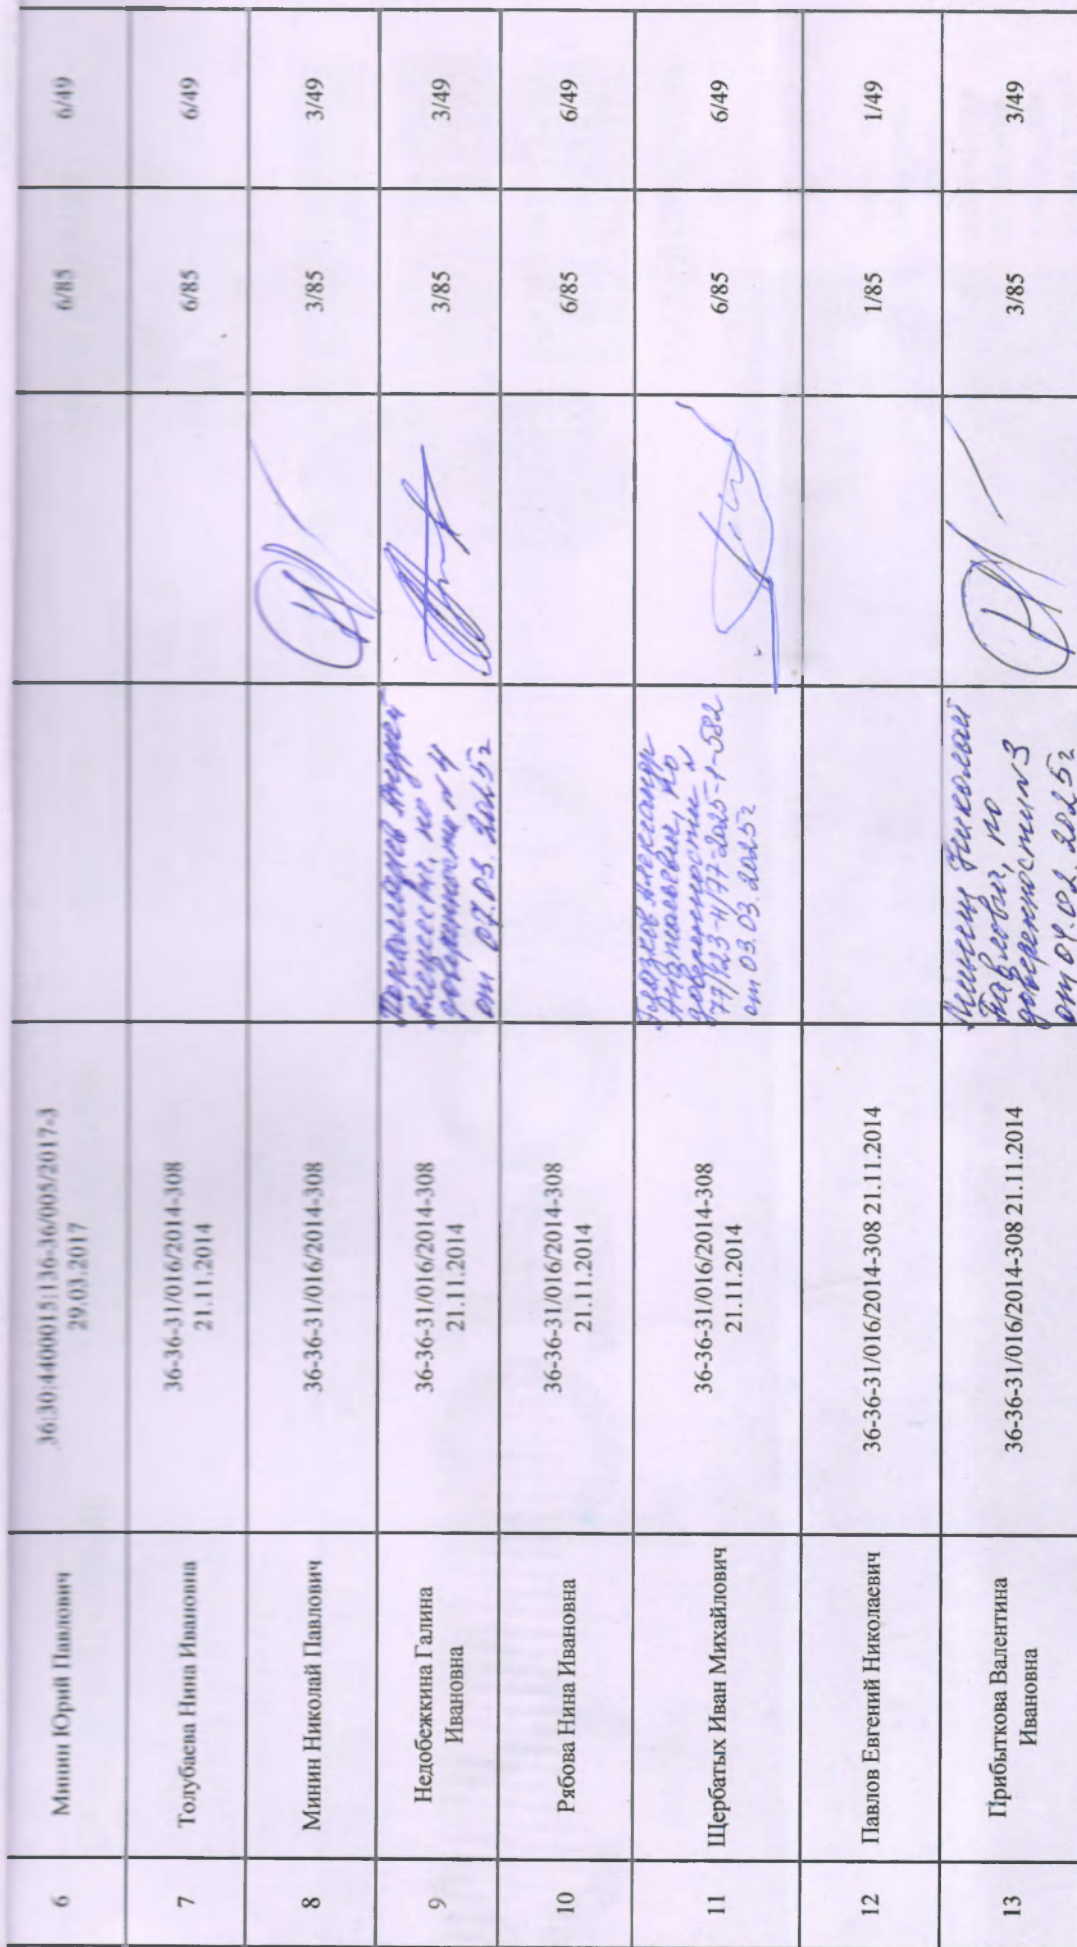 6
Минин Юрий Павлович
36:30:4400015:136-36/005/2017-3
29.03.2017
6/85
6/49
7
Толубаева Нина Ивановна
36-36-31/016/2014-308
21.11.2014
6/85
6/49
8
Минин Николай Павлович
36-36-31/016/2014-308
3/85
3/49
9
Недобежкина Галина
Ивановна
36-36-31/016/2014-308
21.11.2014
Андрей
Алексеевич, по
доверенности № 4
от 07.03.2025г
3/85
3/49
10
Рябова Нина Ивановна
36-36-31/016/2014-308
21.11.2014
6/85
6/49
11
Щербатых Иван Михайлович
36-36-31/016/2014-308
21.11.2014
Александр
Анатольевич, по
доверенности №
77/123-н/77-2025-1-582
от 03.03.2025г
6/85
6/49
12
Павлов Евгений Николаевич
36-36-31/016/2014-308 21.11.2014
1/85
1/49
13
Прибыткова Валентина
Ивановна
36-36-31/016/2014-308 21.11.2014
Минин Николай
Павлович, по
доверенности №3
от 04.02.2025г
3/85
3/49